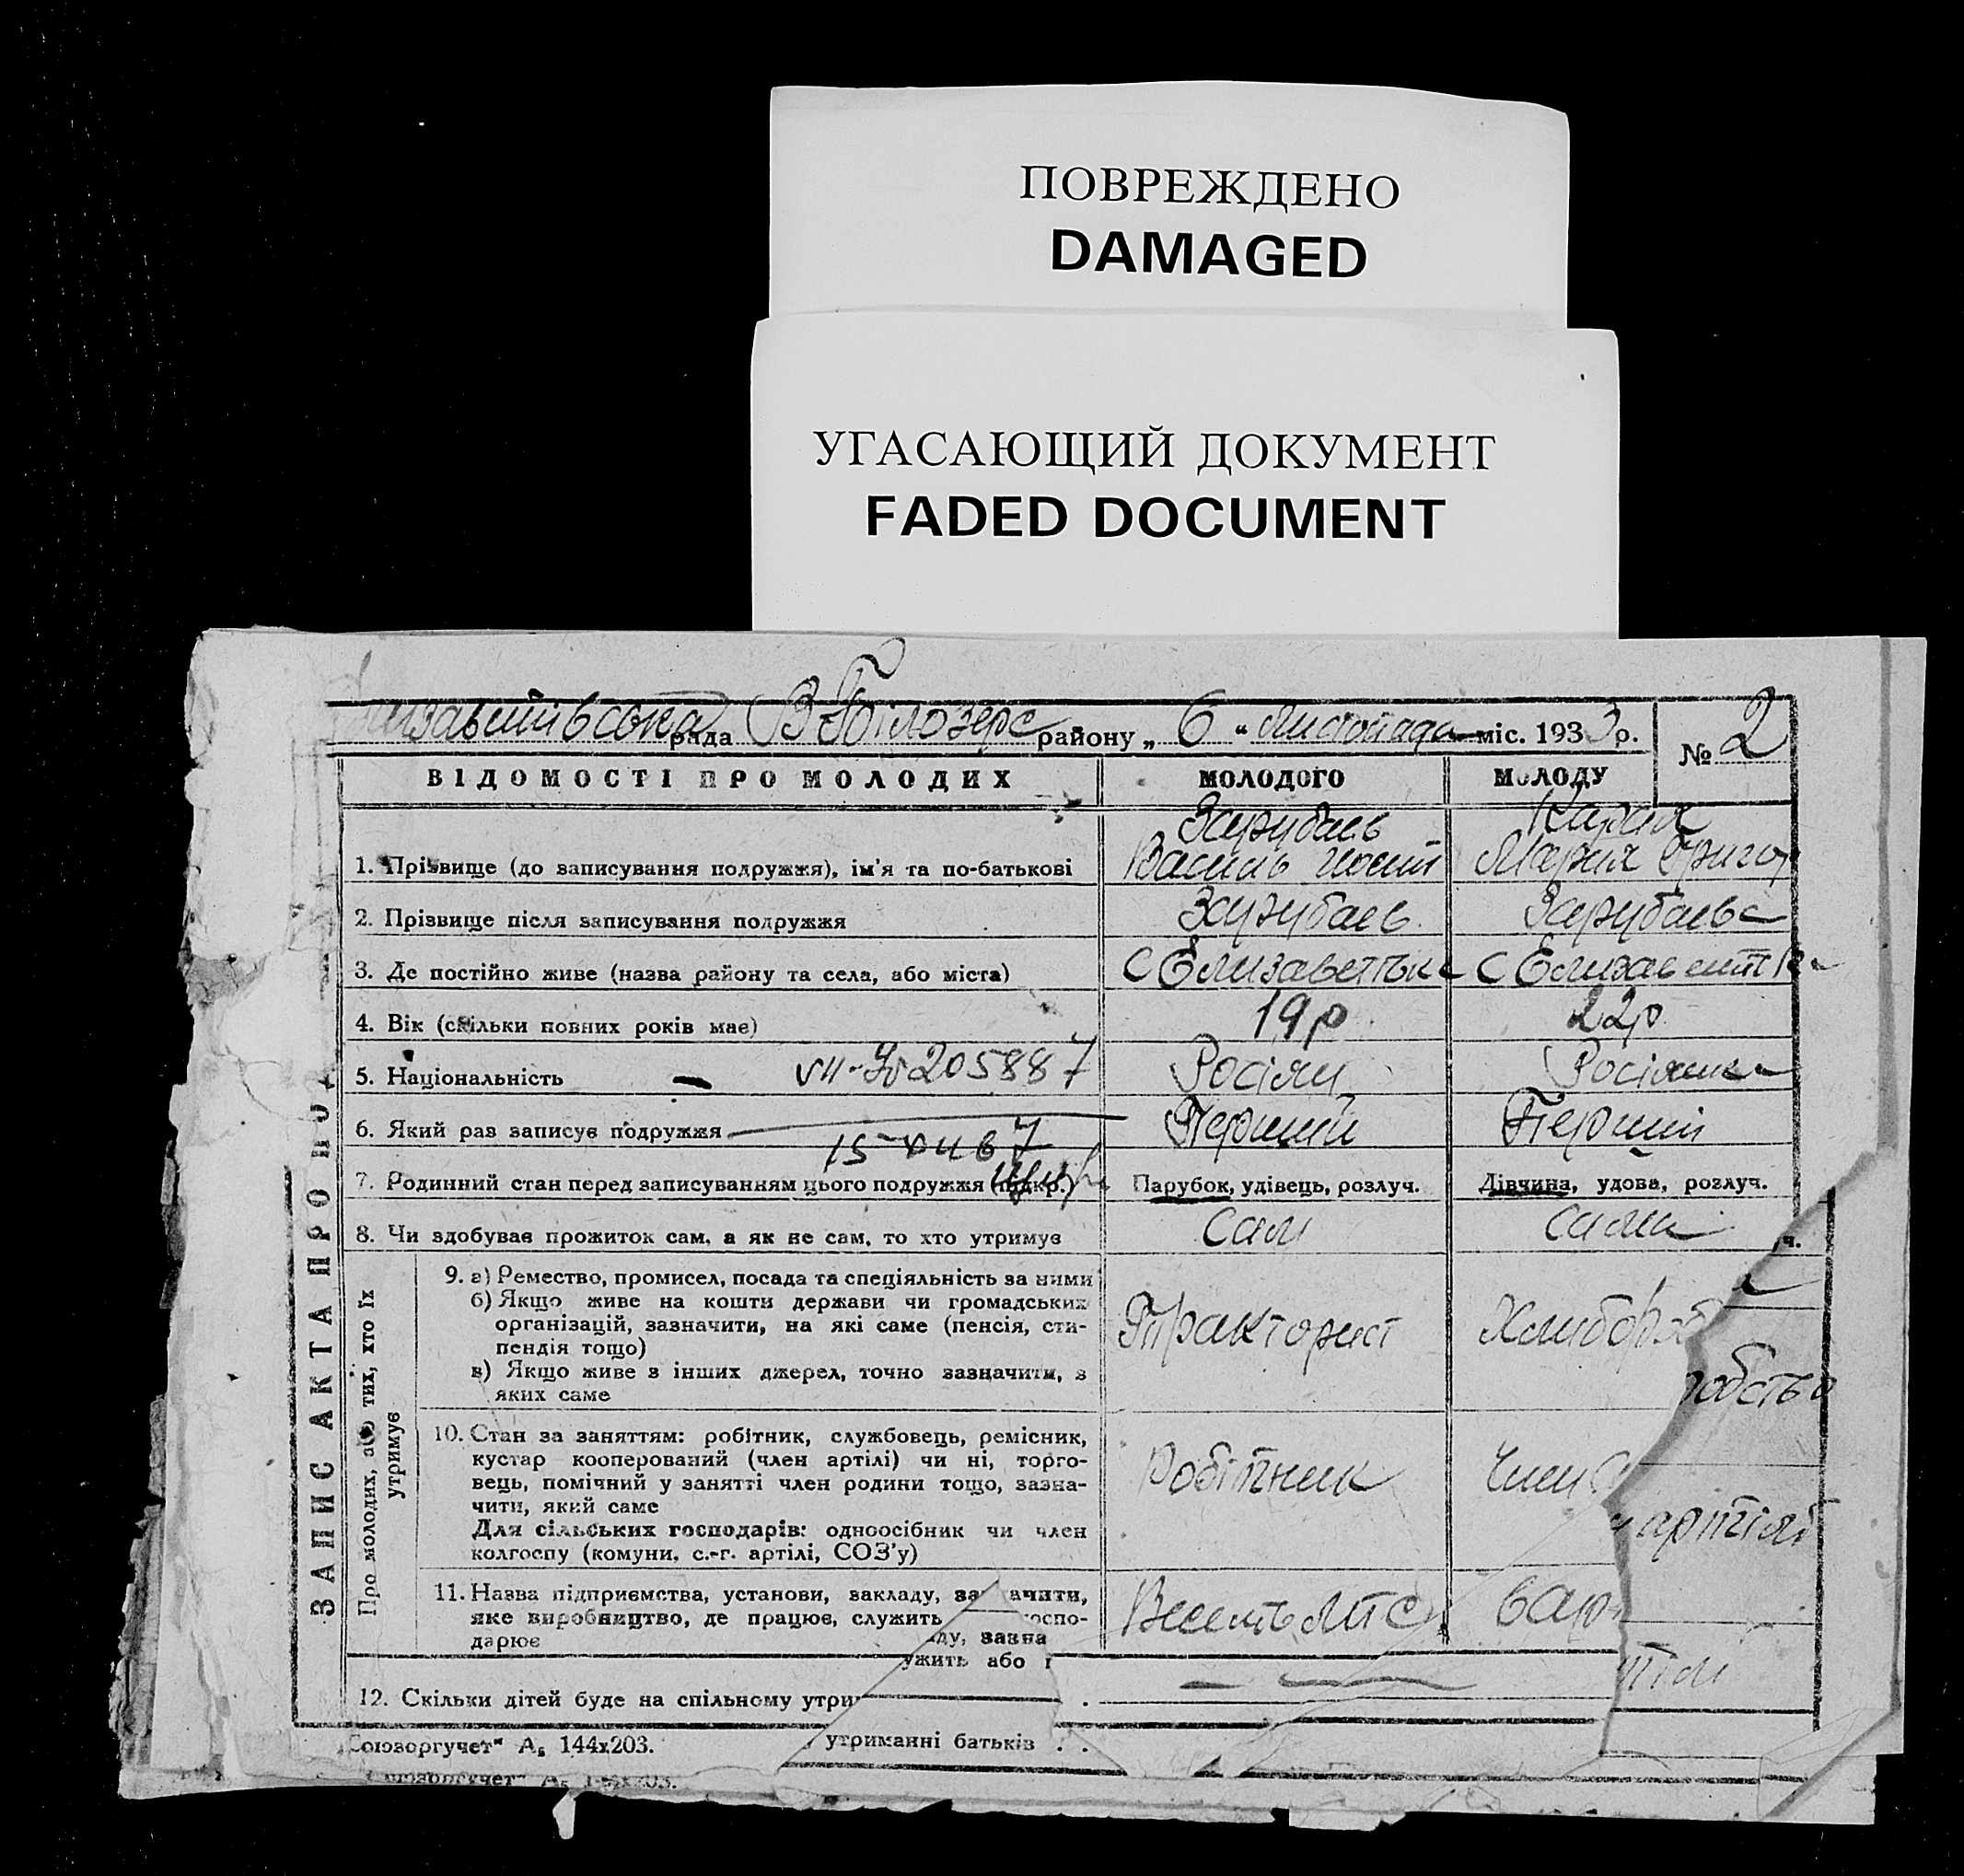 ПОВРЕЖДЕНО
DAMAGED
УГАСАЮЩИЙ ДОКУМЕНТ
FADED DOCUMENT
рада В Білозерс району „ 6 “ Листопада міс. 1933 р.
№ 2
ВІДОМОСТІ ПРО МОЛОДИХ МОЛОДОГО МОЛОДУ
Зарубаев
1. Прізвище (до записування подружжя), ім'я та по-батькові Василь Мария Григор
2. Прізвище після записування подружжя Зарубаев Зарубаева
3. Де постійно живе (назва району та села, або міста) С Елизаветівка С Елизаветівка
4. Вік (скільки повних років має) 19 р 22 р
5. Національність 205887 Росіян Росіянка
6. Який раз записує подружжя Перший Перший
7. Родинний стан перед записуванням цього подружжя (підкр.) Парубок, удівець, розлуч. Дівчина, удова, розлуч.
8. Чи здобував прожиток сам, а як не сам, то хто утримує Сам Сама
ч.
ЗАПИС АКТА ПРО ПО
Про молодих, або тих, хто їх утримує
9. а) Ремество, промисел, посада та спеціяльність за ними
б) Якщо живе на кошти держави чи громадських
організацій, зазначити, на які саме (пенсія, сти-
пендія тощо)
в) Якщо живе з інших джерел, точно зазначити, з
яких саме
Тракторист Хлибороб
робство
10. Стан за заняттям: робітник, службовець, ремісник,
кустар кооперований (член артілі) чи ні, торго-
вець, помічний у занятті член родини тощо, зазна-
чити, який саме
Для сільських господарів: одноосібник чи член
колгоспу (комуни, с.-г. артілі, СОЗ'у)
Робітник Член
артілі
11. Назва підприємства, установи, закладу, за ачити,
яке виробництво, де працює, служить оспо-
дарює ду, зазна
ужить або г
МТС в ар
тіл
12. Скільки дітей буде на спільному утри
утриманні батьків . .
Союзоргучет“ А₅ 144х203.